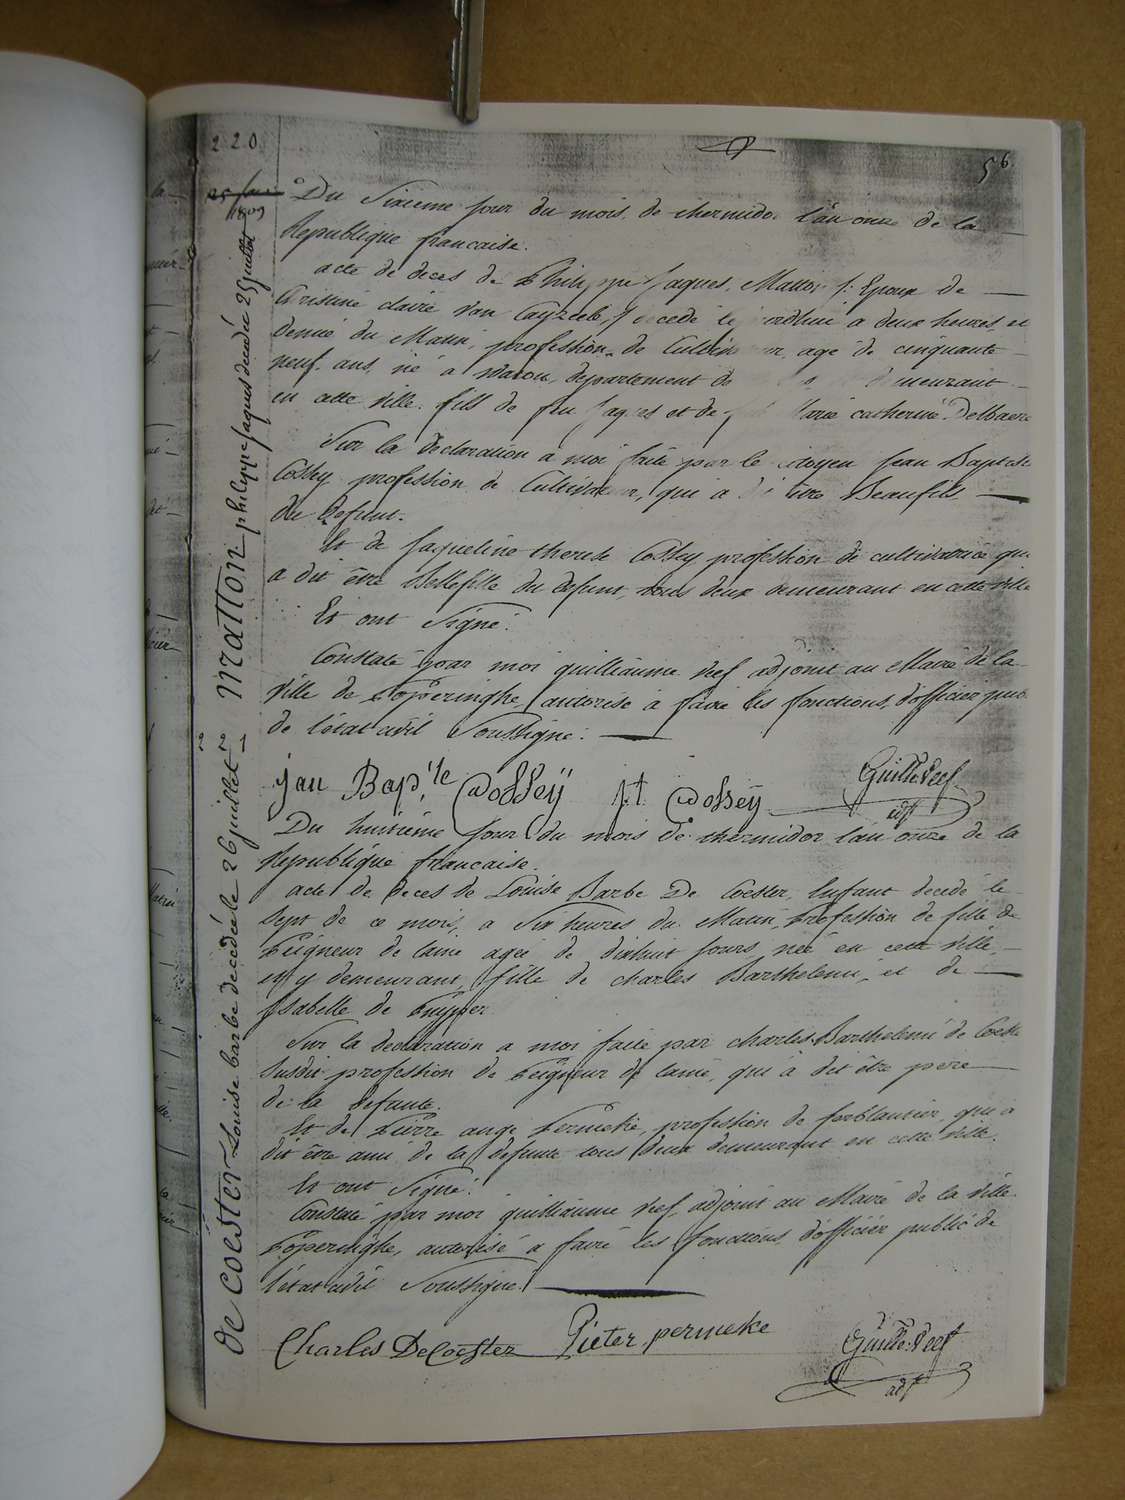 220
56
Du Sixième jour du mois de thermidor l'an onze de la
Republique francaise.
acte de deces de Philippe Jaques Matton Epoux de
claire Van decede a deux heures et
demie du Matin, profession de Cultivateur, agé de cinquante
neuf ans, né a Watou, departement de demeurant
en cette ville fils de feu Jaques et de Marie catherine
Sur la declaration a moi faite par le citoyen Jean Baptiste
Cossey profession de Cultivateur, qui a dit être Beaufils
du defunt.
Et de Jaqueline therese Cossey profession de cultivatrice qui
a dit être Bellefille du defunt, tous deux demeurant en cette ville
Et ont Signé.
Constaté par moi guilliaume Nef adjoint au Maire de la
ville de Poperinghe, autorisé à faire les fonctions d'officier pub
de l'etat civil Soussigné.
jan Bap.te Cossey j.t. Cossey Guille Neef
adj
221
Du huitième jour du mois de thermidor l'an onze de la
Republique francaise.
acte de deces de Louise Barbe De Coester, Enfant decedé le
sept de ce mois, a Six heures du Matin, profession de fille de
Peigneur de laine agée de dixhuit jours, née en cette ville,
et y demeurant, fille de charles Barthelemi, et de
Isabelle de Cuyper
Sur la declaration a moi faite par charles Barthelemi de Coest
Susdit profession de Peigneur de laine, qui a dit être pere
de la defunte.
Et de Pierre ange Permeke, profession de ferblantier, qui a
dit être ami de la defunte tous deux demeurant en cette ville.
Et ont Signé.
Constaté par moi guilliaume Nef adjoint au Maire de la ville
Poperinghe, autorisé a faire les fonctions d'officier public de
l'état civil Soussigné
Charles DeCoester Pieter permeke Guille Neef
adj
Matton philippe jaques decedée 25 juillet
1803
de Coester Louise barbe decedée le 26 juillet